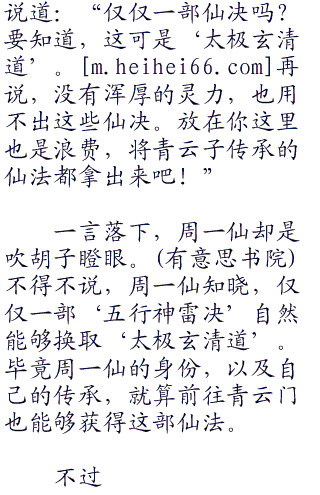 说道：“仅仅一部仙决吗？
要知道，这可是‘太极玄清
道’。[m.heihei66.com]再
说，没有浑厚的灵力，也用
不出这些仙决。放在你这里
也是浪费，将青云子传承的
仙法都拿出来吧！”
一言落下，周一仙却是
吹胡子瞪眼。(有意思书院)
不得不说，周一仙知晓，仅
仅一部‘五行神雷决’自然
能够换取‘太极玄清道’。
毕竟周一仙的身份，以及自
己的传承，就算前往青云门
也能够获得这部仙法。
不过